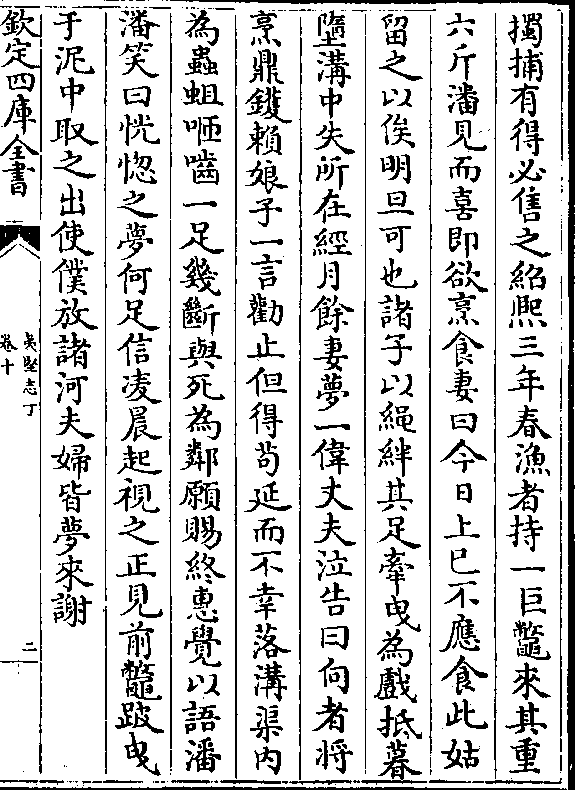 擉捕有得必售之紹熙三年春漁者持一巨鼈來其重
六斤潘見而喜即欲烹食妻曰今日上巳不應食此姑
留之以俟明旦可也諸子以繩絆其足牽曳為戲抵暮
墮溝中失所在經月餘妻夢一偉丈夫泣告曰向者將
烹鼎鑊賴娘子一言勸止但得苟延而不幸落溝渠内
為蟲蛆咂嚙一足幾斷與死為鄰願賜終惠覺以語潘
潘笑曰恍惚之夢何足信凌晨起視之正見前鼈跛曳
于泥中取之出使僕放諸河夫婦皆夢來謝
欽定四庫全書
夷堅志丁
卷十
二